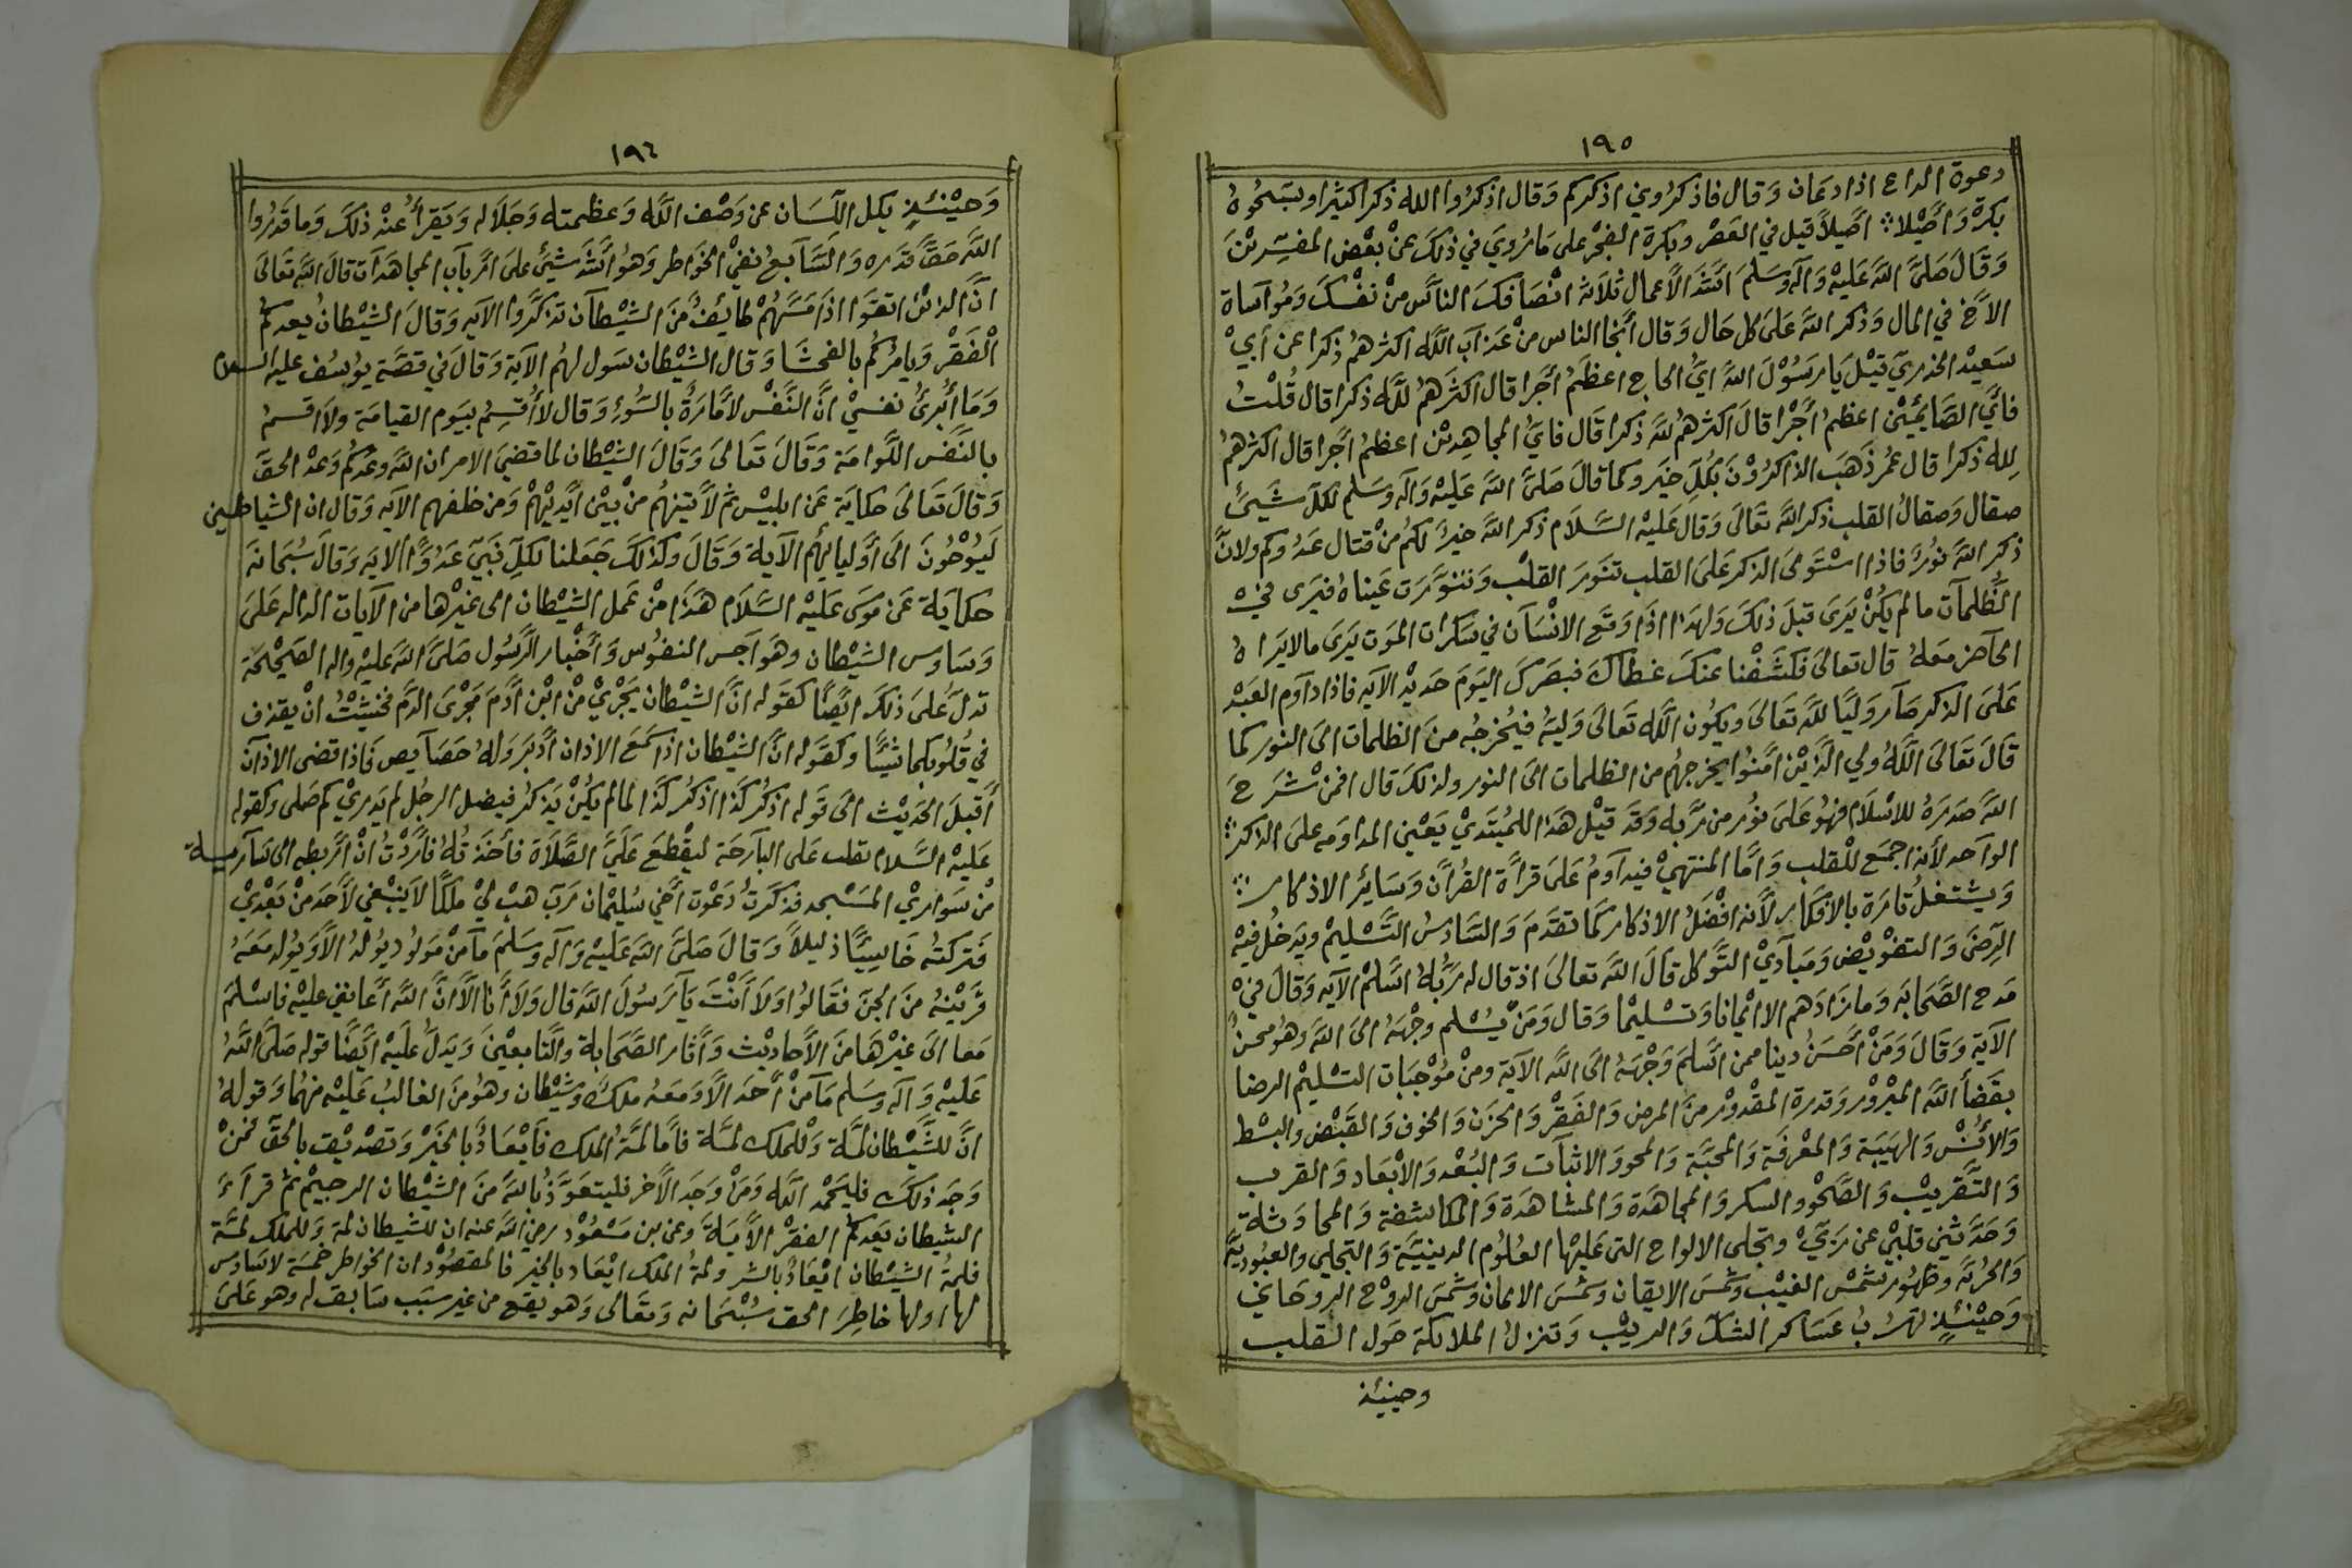 ١٩٥
دعوة الداع اذا دعان وَقال فاذكرُوني اذكركم وَقال اذكرُوا الله ذكرا كثيرا وسَبحُوهُ
بكرة وَاصيْلا ؞ اصَيلاً قيل في العَصْر وبكرة الفجْر على مَا رُويَ في ذلكَ عنْ بعْض المفسِّرينَ
وَقَالَ صَلىَّ اللَّه عَليْه وَآله وَسَلمَ اشَدّ الأعمال ثلاَثه انْصَافكَ الناسَ منْ نفسْكَ وَمُواسَاة
الاَخ في المال وَذكر اللَّه عَلىَ كل حَال وَقال أنجا الناس منْ عَذاب اللَّه اكثرهُمْ ذكرا عن أبيْ
سَعيْد الخدريّ قيْل يَا رَسُوْلَ اللَّه ايُّ الحاج اعظمُ أجَرا قال اكثرَهمُ للَّه ذكرا قال قُلْتُ
فايَّ الصَّايميْن اعظمُ أجْرا قالَ اكثرهُم للَّه ذكرا قَال فايَُّ المجاهِديْن اعظمُ أجَرا قال اكثرهمُ
لِله ذكرا قال عُمر ذَهَبَ الذاكرُوْنَ بكُلِّ خيَر وكما قالَ صَلىَّ اللَّه عَليْه وَآله وَسَلم لكل شَيئ
صقال وَصقالُ القلب ذكر اللَّه تعَالىَ وَقالَ عَليْه السَّلاَم ذكر اللَّه خيرٌ لكمُ منْ قتال عَدُوكم ولانّ
ذكر اللَّه نوُرٌ فاذا اسْتَولىَ الذكر عَلىَ القلب تنوَر القلْب وَتنوَّرَت عَيناهُ فيَرى في
الظُلمآت مالم يكُنْ يَرىَ قبلَ ذلكَ وَلهَذا اذَا وَقعَ الانْسَان في سَكرات الموَت يَرىَ مالايَرا هُ
الحَاضر معَهُ قال تعالىَ فكشَفْنا عنكَ غطاكَ فبصَركَ اليوَمَ حَديْد الآيه فاذا دآوم العَبْد
عَلىَ الذكر صَار وَليًّا للَّه تَعَالىَ ويكوُن اللَّه تَعَالىَ وَليَّهُ فيُخرجُه منَ الظلمات الىَ النور كما
قالَ تَعَالىَ اللَّهُ ولي الَّذيْنَ امَنوُا يخرجهُم من الظلمات الىَ النور ولذلكَ قال افمن شَرَحَ
اللَّه صَدرَهُ للاسْلاَم فهُوَ عَلىَ نوُر من رَّبه وَقدَ قيْل هَذا للمُبتَديْ يَعْنيْ المداومه علىَ الذكر ؞
الوآحد لأنه اجمَع للْقلب وَامَّا المنتهيْ فيدآومُ عَلىَ قرأة القُرآن وَسَائر الاذكار ؞
وَيشتغلُ تارَة بالأفكار لأنه افضَلُ الاذكار كمَا تقدَمَ وَالسَّادسُ التَّسْليمْ ويَدخُل فيْه
الرِّضىَ وَالتفوْيْض وَمَبآديْ التَّوَكل قالَ اللَّه تعَالىَ اذ قال له رَبُّهُ اسَّلمْ الآيه وَقالَ فيْ
مَدح الصَّحَابه وَما زَادَهم الا ايْمانا وَتسْليمًا وَقال وَمَنْ يُسْلم وجْهَهُ الىَ اللَّه وَهُومحسنٌ
الآيَة وَقالَ وَمَنْ أحَسَنُ دينا ممن اسَّلمَ وَجْهَهُ الىَ اللَّه الآيَة ومنْ مُوْجَبَات التسْليمْ الرضا
بقَضأ اللَّه المبرُوْر وَقدرة المقْدوْر منَ المرض وَالفَقرْ وَالحَزن وَالخوف وَالقَبْض والبسْط
وَالأنُسْ وَالهَيَبَة وَالمعْرفَة وَالمحَبَّة وَالمحو وَالاثبآت وَالبُعْد وَالاْبعَاد وَالقرب
وَالتَّقريبْ وَالصَّحْو والسكر وَالمجاهَدَة وَالمشاهَدَة وَالمكاشفة وَالمحا دَثة
وَحَدَّثنيْ قلبيْ عن رَبيّ وتجلى الالواح التى عَليْها العُلوُم الدينيَّة وَالتجلى والعبُوديَّة
وَالحُرّيَّه وظهُور شمْس الغيْب وشمْسَ الايقان وشمْسَ الايمان وشمْسَ الروْح الروحَاني
وَحيْنئِذٍ تهرُبُ عَسَاكر الشكّ وَالريْب وَتنزلُ الملائكة حَول القلب
وحينئذ
١٩٦
وَحيْنئِذٍ يكل اللسَان عن وَصْف اللَّه وَعظمتهِ وَجَلاَله وَيَقرأُ عنْد ذلكَ وَما قدرُوا
اللَّه حَقَّ قدره وَالسَّابعُ نفيْ الخوَاطر وَهُو اشَدُّ شيَئ علىَ ارْبآب المجاهَدَآت قالَ اللَّه تَعَالىَ
انَّ الذيْن اتقوَا اذَا مَسَّهُمْ طَايُفُ منَ الشيْطآن تذكرَّوا الآيه وَقالَ الشيْطانُ يعدكمُ
الْفَقْر وَيامُركمُ بالفحشَا وَقال الشيْطان سَول لهمُ الآيَة وَقالَ في قصَّة يوُسُف عليه السلام
وَمَا أُبرئُ نفسيْ انَّ النَّفسْ لأمَّارَةُ بالسُّوْءِ وَقال لاَأُقسِمُ بيَوم القيامَة ولا اقسمُ
بالنَّفْس اللَّوامَة وَقَالَ تَعَالىَ وَقَالَ الشيْطان لما قضيَ الامر ان اللَّه وعَدَكمُ وَعْدَ الحقّ
وَقَالَ تَعَالىَ حكايَة عَن ابليْس ثمَّ لأتيَنهُم منْ بيْن أيْديْهمْ وَمن خلفهم الآيه وَقال ان الشياطين
ليَوُحُونَ الىَ أوْليَايُهم الآيَة وَقَالَ وَكذلكَ جَعَلنا لكلِّ نَبيّ عَدوَّا الايَه وَقالَ سُبحَانَه
حكايَة عَن مُوسَى عَليْه السَّلاَم هَذَا منْ عَمل الشيْطان الى غيْرها من الآيات الداله عَلىَ
وَسَاوس الشيْطان وَهَوَآجس النفوُس وَأخْبار الرَّسُول صَلىَّ اللَّه عَليْه واله الصَّحيْحَة
تدلّ عَلىَ ذلكَ ايضًا كقَوله انَّ الشيْطان يَجْريْ منْ ابْن أدَمَ مجْرىَ الدَّم فخشيْتُ انْ يقذف
في قُلُوبكما شَيْئًا وَكقَوله انَّ الشيْطان اذا سَمعَ الاذان أدْبرَ وَلهُ حصَآيص فاذا قضى الاذان
أقبلَ الحَديْث الىَ قوَله اذكُر كَذا اذكُر كَذَا لما لم يكُنْ يَذكرُ فيضل الرجُل لم يَدريْ كم صَلى وكقوله
عَليْه السَّلام تفلت عَلى البآرحَة ليقْطعَ عَليَّ الصَّلاَة فأخَذتُهُ فأرَدْتُ انْ أرْبطه الى سَآريـة
منْ سَواريْ المسَْجد فذكَرتُ دَعْوَت أخيْ سُليْمان رَبّ هبْ ليْ ملكًا لاَينْبغي لأحَد منْ بَعْديْ
فتَركتهُ خَاسِيًا ذليلاً وَقالَ صَلىَّ اللَّه عَليْه وَآله وَسَلمَ مَآ منْ مَولوُد يوُلدُ الأوَ يوُلد مَعَهُ
قريْنُهُ منَ الجنّ فقَالوُا وَلاَ أنْتَ يَآرَسُولَ اللَّه قال وَلاَ أنا الآ انَّ اللَّه أعَانني عليْه فاسْلمَ
مَعَا الىَ غيْرهَا منَ الأحاديْث وَأثار الصَّحَابة وَالتَّابعيْن وَيَدلُّ عَليْه ايْضًا قوله صَلىَّ اللَّهُ
عَليْه وَآله وَسَلم مَآ منْ أحَد الاَّ وَمعَهُ ملكٌ وشَيْطان وهُو منَ الغالبُ عَليْه منهُمَا وَقولهُ
انَّ للشَّيْطان لمَّة وَلْلمَلك لمَّة فأمَّا لمَّةُ الملك فايْعَادُ بالخيَرْ وَتصْديْق بالحَقّ فمَنْ
وَجَد ذلكَ فليَحْمد اللَّه وَمَنْ وَجَد الأخر فليتعَوَّذُ باللَّه منَ الشيْطان الرجيْم ثمَّ قرآءَ
الشيطان يَعدكمُ الفقرْ الأيَة وَعن بن مَسْعُوْد رضي اللَّه عنه ان للشيْطان لمة وَللملك لمَّة
فلمَّةُ الشيْطان ايْعَادُ بالشر ولمةُ الملك ايْعَاد بالخير فالمقصُوْد ان الخواطر خمْسَة لاسَادسَ
لها اولها خاطِرَ الحق سُبْحَانه وَتعَالى وَهو يقع من غير سَبَب سَابق له وهو عَلىَ